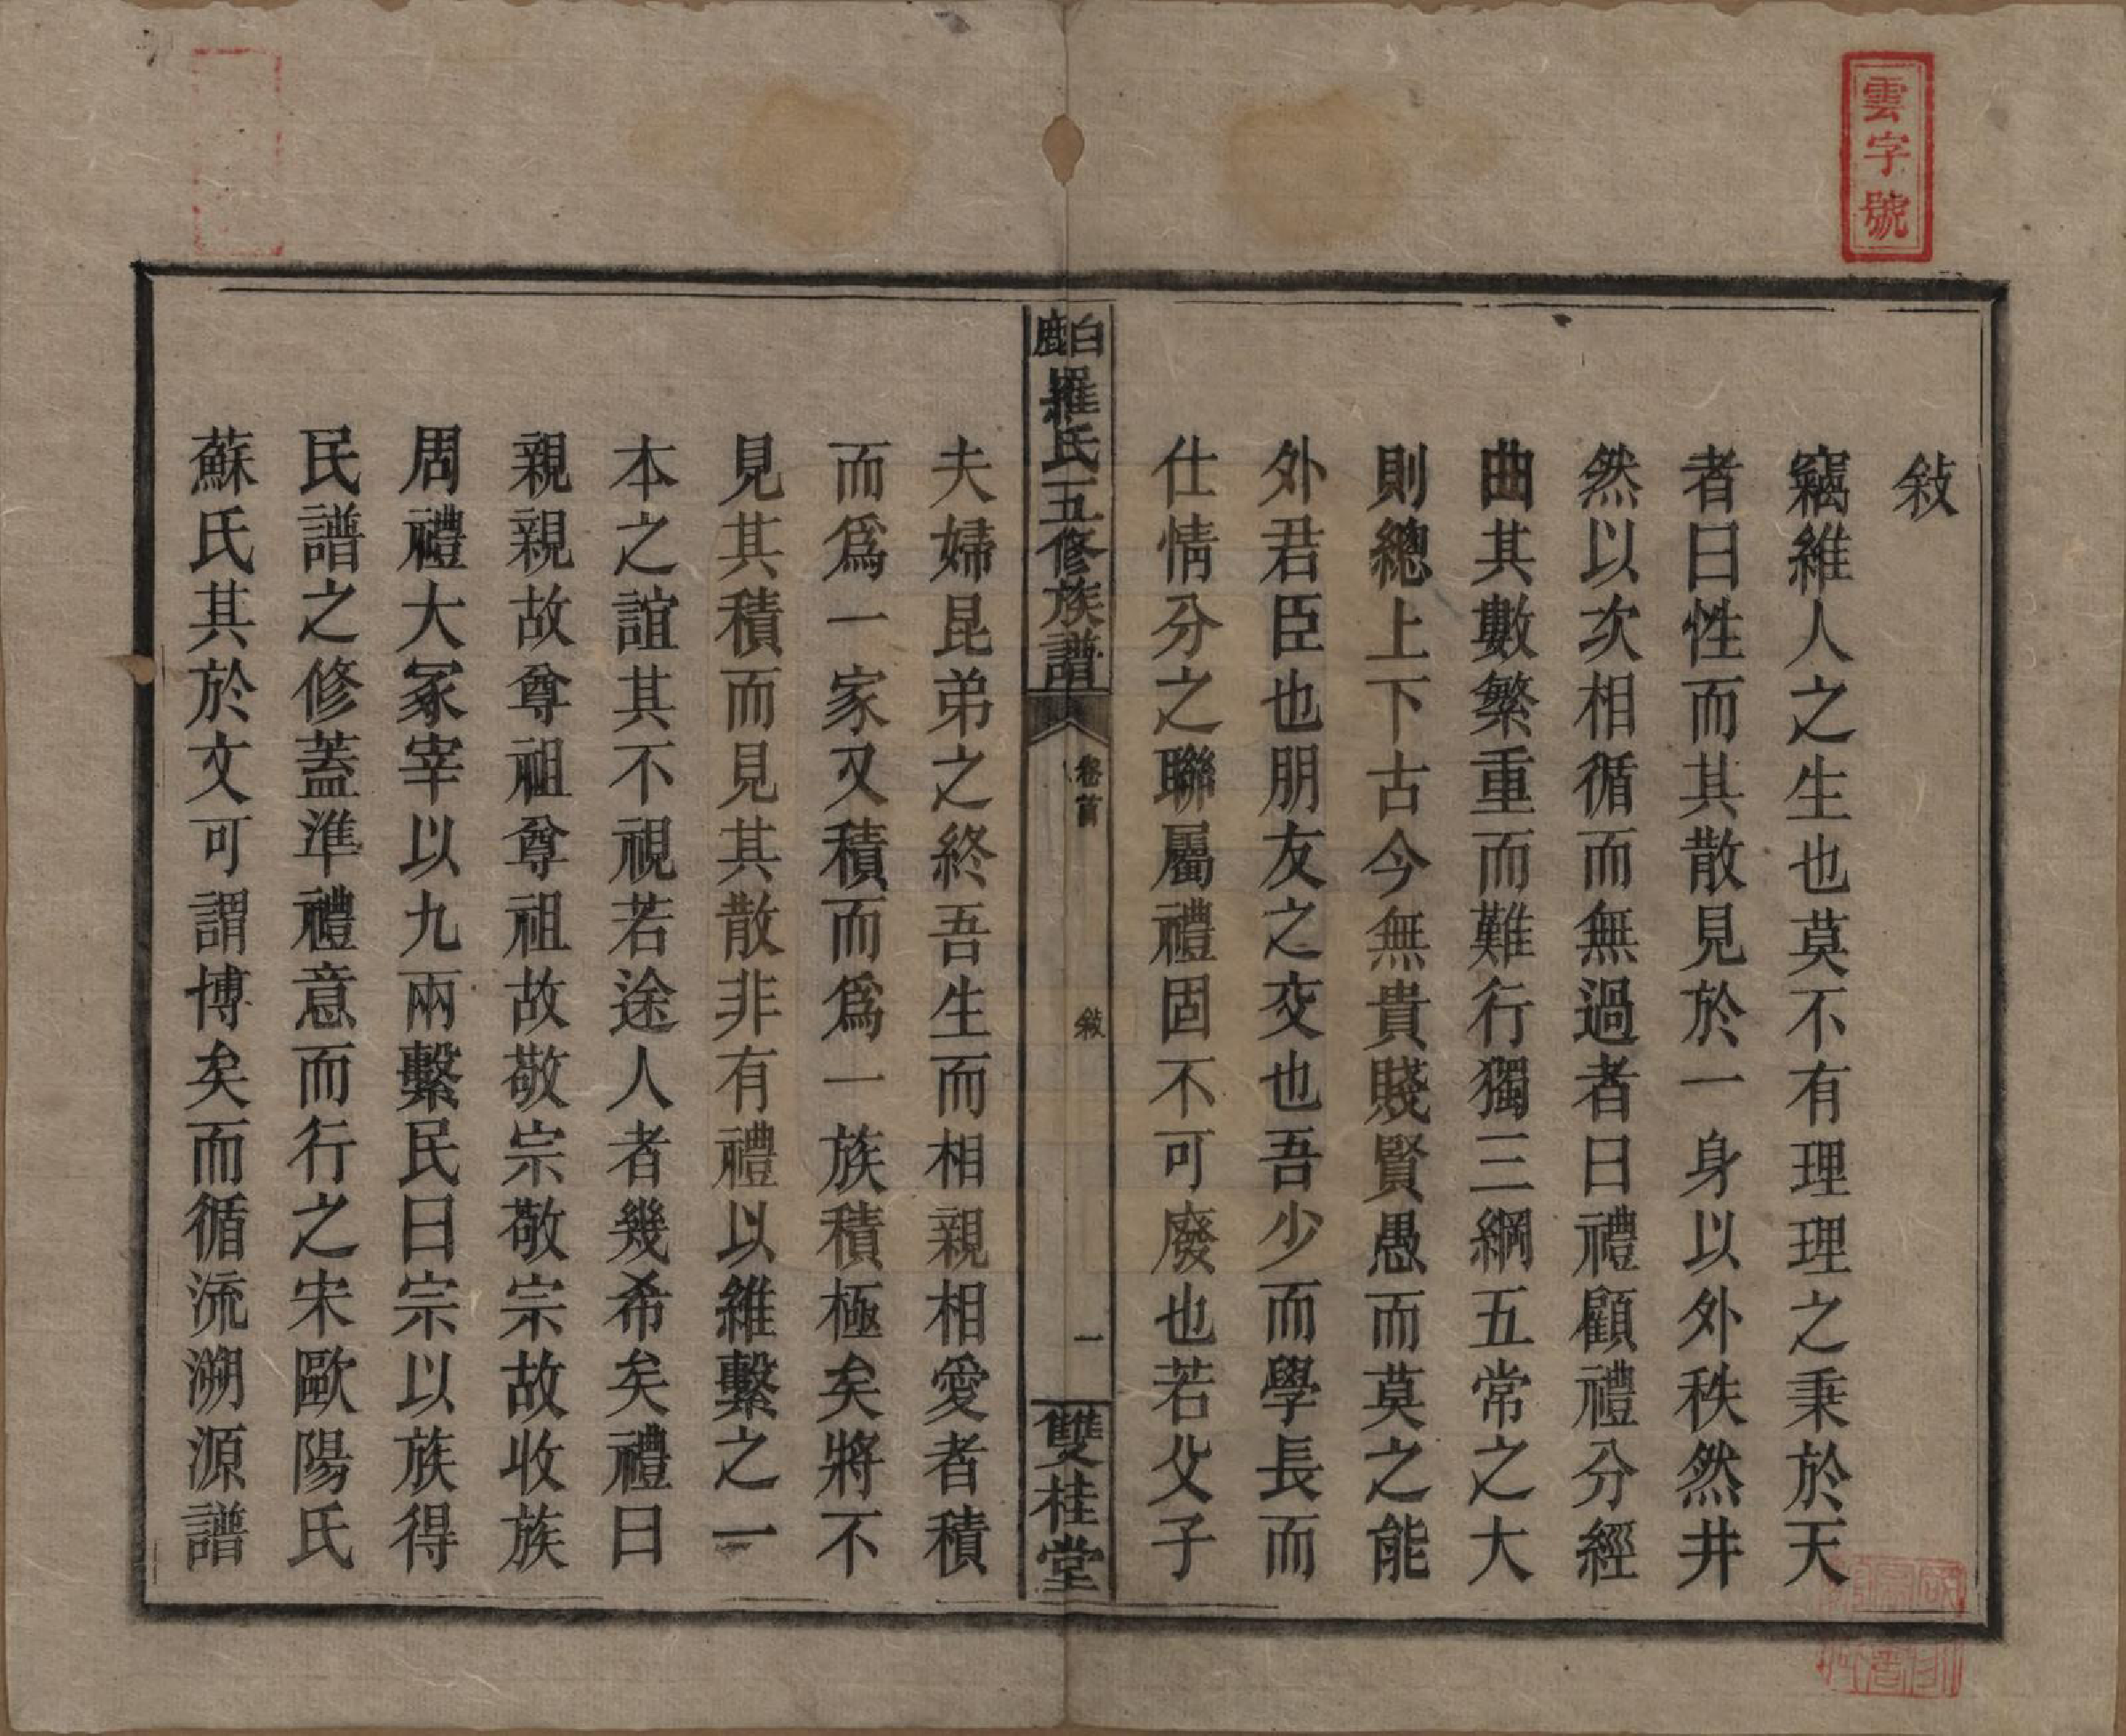 雲字號
敍
竊維人之生也莫不有理理之秉於天
者曰性而其散見於一身以外秩然井
然以次相循而無過者曰禮顧禮分經
曲其數繁重而難行獨三綱五常之大
則總上下古今無貴賤賢愚而莫之能
外君臣也朋友之交也吾少而學長而
仕情分之聯屬禮固不可廢也若父子
白鹿羅氏五修族譜
卷首
敍
一
雙桂堂
夫婦昆弟之終吾生而相親相愛者積
而爲一家又積而爲一族積極矣將不
見其積而見其散非有禮以維繫之一
本之誼其不視若途人者幾希矣禮曰
親親故尊祖尊祖故敬宗敬宗故收族
周禮大冢宰以九兩繫民曰宗以族得
民譜之修蓋準禮意而行之宋歐陽氏
蘇氏其於文可謂博矣而循流溯源譜